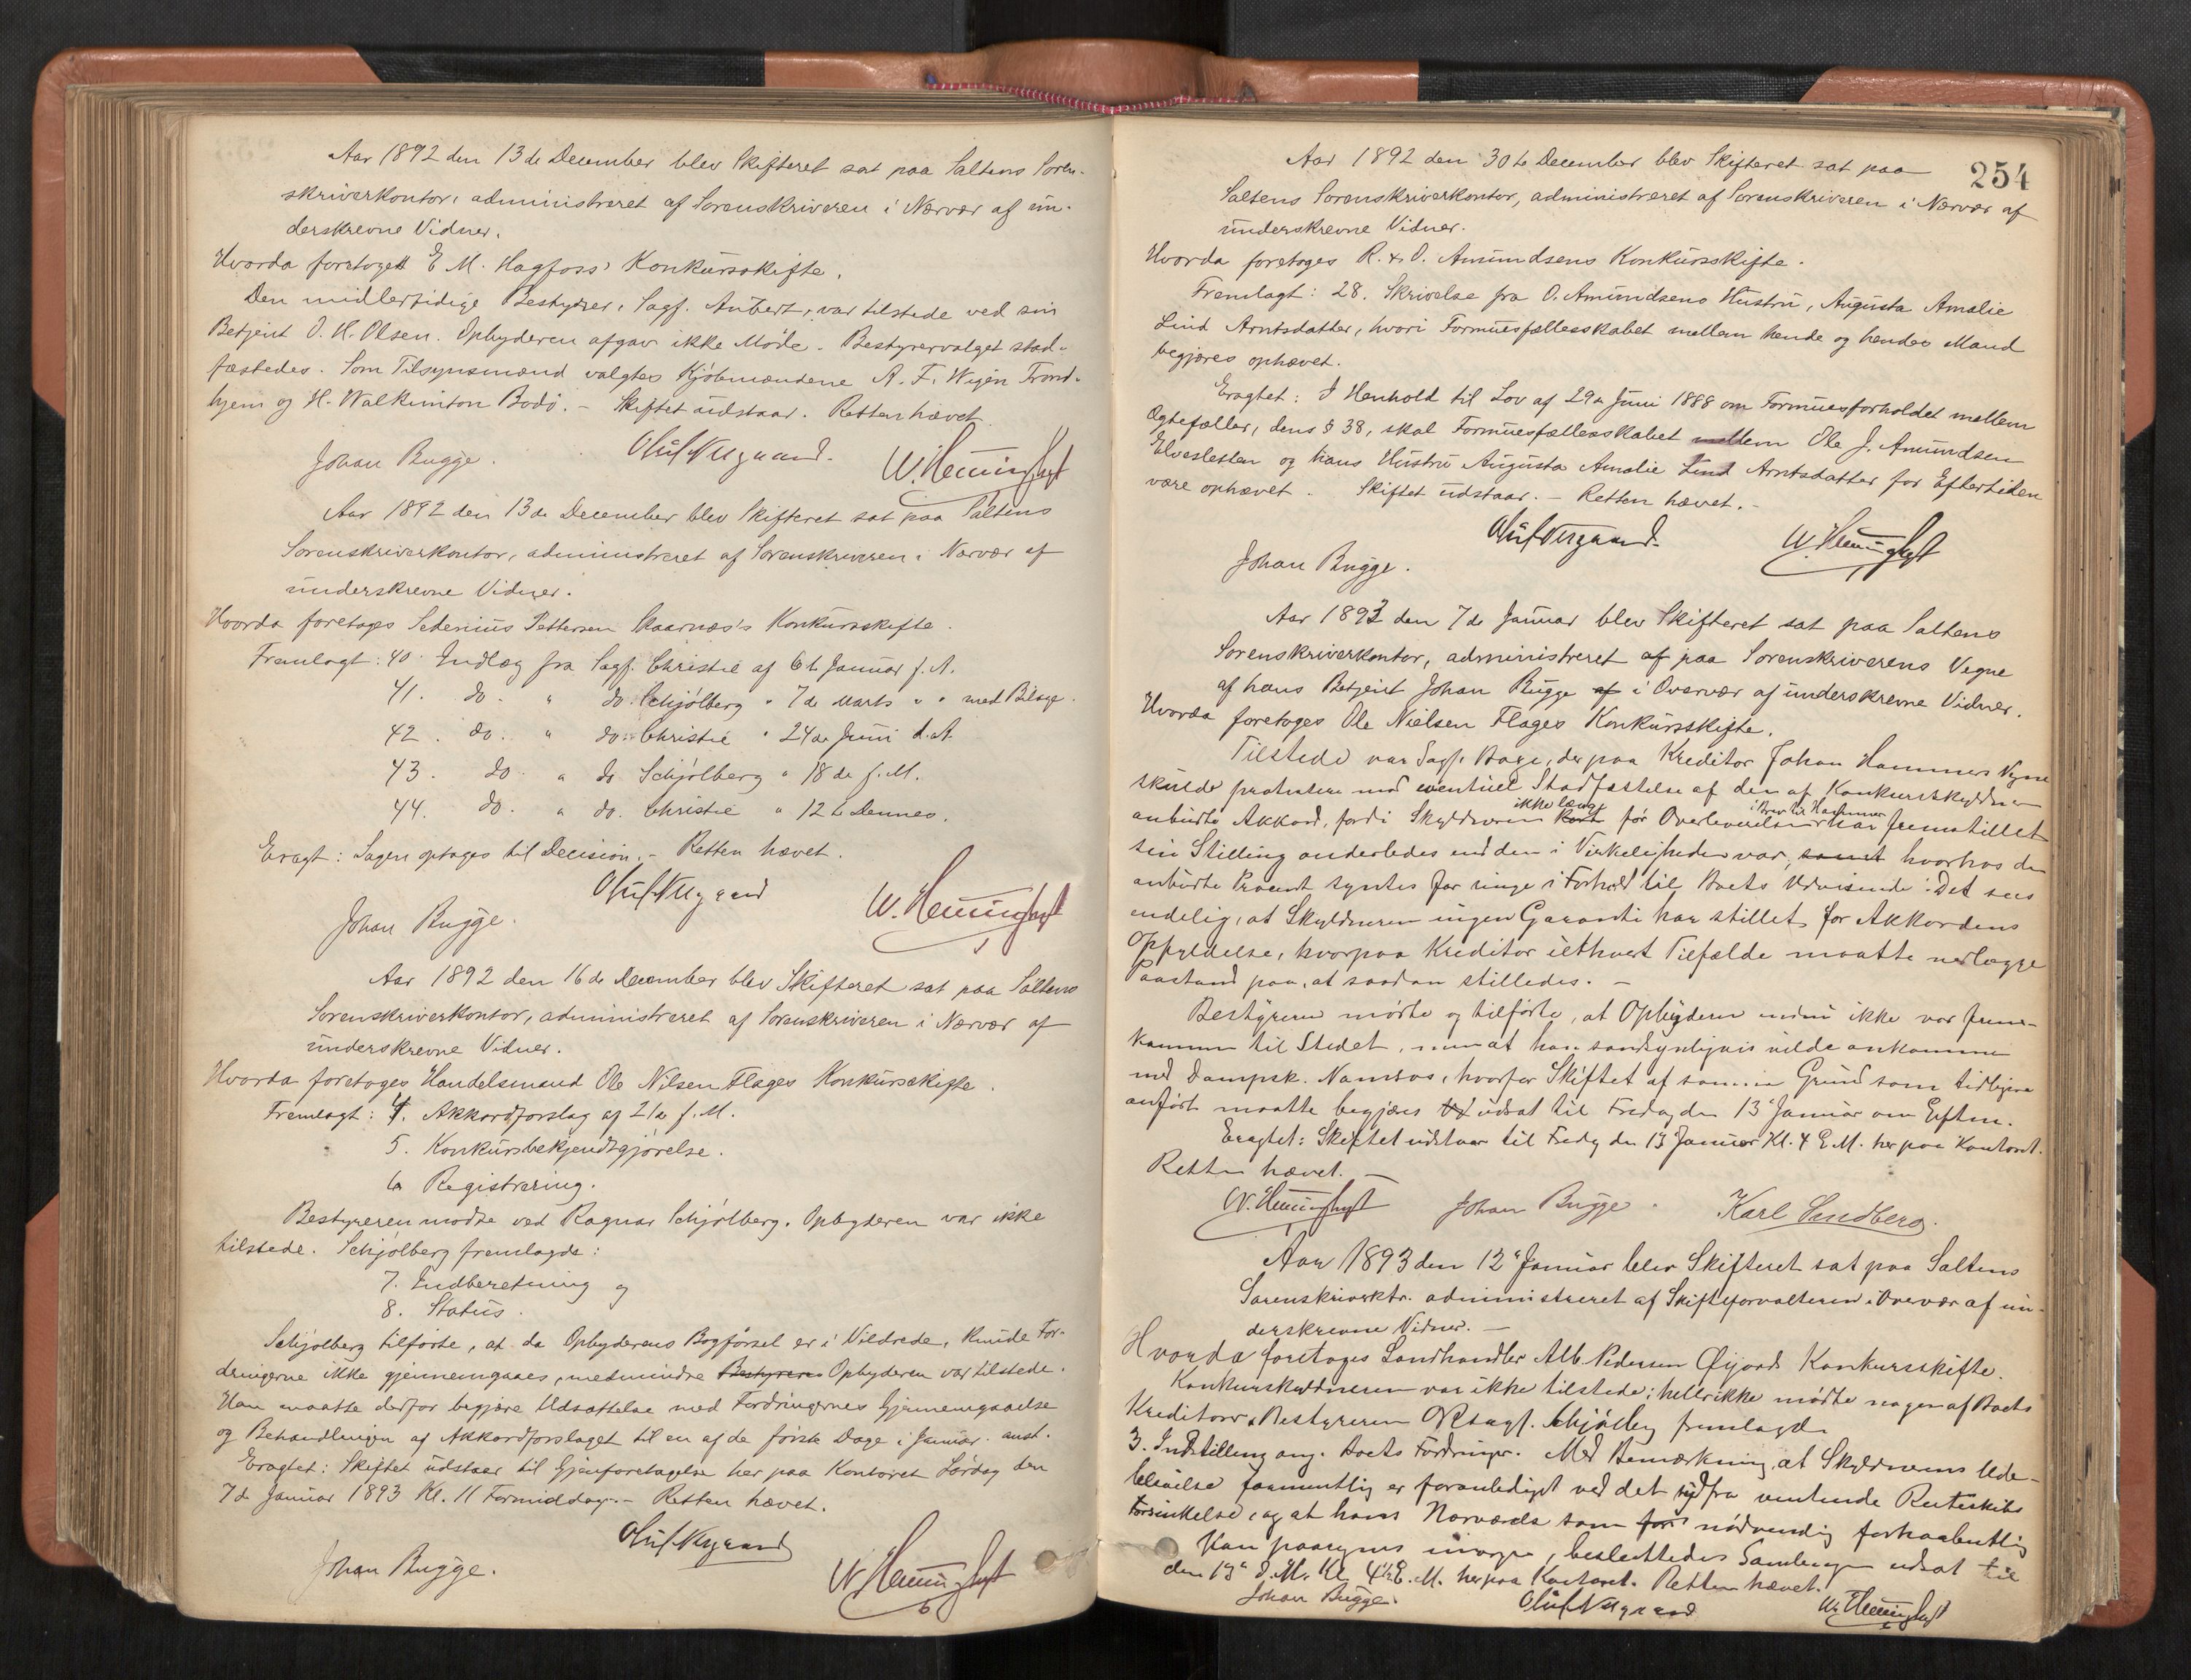 Aar 1892 den 13de December blev Skifteret sat paa Saltens Soren-
skriverkontor, administreret af Sorenskriveren i Nærvær af un-
derskrevne Vidner.
Hvorda foretoges E M. Hagfoss' Konkursskifte.
Den midlertidige Bestyrer, Sagf. Aubert, var tilstede ved sin
Betjent O. H. Olsen. Opbyderen afgav ikke Møde. Bestyrervalget stad-
fæstedes. Som Tilsynsmænd valgtes Kjøbmændene A. F. Wigen Trond-
hjem og H. Walkinton Bodø. – Skiftet udstaar. Retten hævet.
Johan Bugge.
Aar 1892 den 13de December blev Skifteret sat paa Saltens
Sorenskriverkontor, administreret af Sorenskriveren i Nærvær af
underskrevne Vidner.
Hvorda foretoges Sedenius Pettersen Skaarnæs's Konkursskifte.
Fremlagt: 40. Indlæg fra Sagf. Christie af 6te Januar f. A.
41. do. " do. Schjølberg " 7de Marts " " med Bilage.
42. do. " do. Christie " 24de Juni d. A.
43. do. " do Schjølberg " 18de f. M.
44. do. " do. Christie " 12te Dennes.
Eragt: Sagen optages til Decision. – Retten hævet.
Johan Bugge.
Aar 1892 den 16de December blev Skifteret sat paa Saltens
Sorenskriverkontor, administreret af Sorenskriveren i Nærvær af
underskrevne Vidner.
Hvorda foretoges Handelsmand Ole Nilsen Flages Konkursskifte.
Fremlagt: 4. Akkordforslag af 21de f. M.
5. Konkursbekjendtgjørelse.
6. Registrering.
Bestyreren mødte ved Ragnar Schjølberg. Opbyderen var ikke
tilstede. Schjølberg fremlagde:
7. Indberetning og
8. Status.
Schjølberg tilførte, at da Opbyderens Bogførsel er i Vildrede, kunde For-
dringerne ikke gjennemgaaes, medmindre Bestyreren Opbyderen var tilstede.
Han maatte derfor begjære Udsættelse med Fordringernes Gjennemgaaelse
og Behandlingen af Akkordforslaget til en af de første Dage i Januar. anst.
Eragtet: Skiftet udstaar til Gjenforetagelse her paa Kontoret Lørdag den
7de Januar 1893 Kl. 11 Formiddag. – Retten hævet.
Johan Bugge.
254
Aar 1892 den 30te December blev Skifteret sat paa
Saltens Sorenskriverkontor, administreret af Sorenskriveren i Nærvær af
underskrevne Vidner.
Hvorda foretoges R. & O. Amundsens Konkursskifte.
Fremlagt: 28. Skrivelse fra O. Amundsens Hustru, Augusta Amalie
Lind Arntsdatter, hvori Formuesfællesskabet mellem hende og hendes Mand
begjæres ophævet.
Eragtet: I Henhold til Lov af 29de Juni 1888 om Formuesforholdet mellem
Ægtefæller, dens § 38, skal Formuesfællesskabet mellem Ole J. Amundsen
Elvesletten og hans Hustru Augusta Amalie Lind Arntsdatter for Eftertiden
være ophævet. Skiftet udstaar. – Retten hævet. –
Johan Bugge.
Aar 1893 den 7de Januar blev Skifteret sat paa Saltens
Sorenskriverkontor, administreret af paa Sorenskriverens Vegne
af hans Betjent Johan Bugge af i Overvær af underskrevne Vidner.
Hvorda foretoges Ole Nielsen Flages Konkursskifte.
Tilstede var Sagf. der paa Kreditor Johan Hammers Vegne
skulde protestere mod eventuel Stadfæstelse af den af Konkursskyldneren
ikke længe i Brev til Hammer
anbudte Akkord, fordi Skyldneren kort før Overleverelsen har fremstillet
sin Stilling anderledes end den i Virkeligheden var, samt hvorhos de
anbudte Procent syntes for ringe i Forhold til Boets Udvisende. Det sees
endelig, at Skyldneren ingen Garanti har stillet for Akkordens
Opfyldelse, hvorpaa Kreditor ialthvert Tilfælde maatte nedlægge
Paastand paa, at saadan stilledes. –
Bestyreren mødte og tilførte, at Opbyderen endnu ikke var frem-
kommen til Stedet, men at han sandsynligvis vilde ankomme
med Dampsk. Namsos, hvorfor Skiftet af samme Grund som tidligere
anført maatte begjæres udsat til Fredag den 13de Januar om Efterm.
Eragtet: Skiftet udstaar til Fredag den 13 Januar Kl. 4 E.M. her paa Kontoret.
Retten hævet. –
Johan Bugge. Karl Sundberg.
Aar 1893 den 12te Januar blev Skifteret sat paa Saltens
Sorenskriverktr. administreret af Skifteforvalteren i Overvær af un-
derskrevne Vidner. –
Hvorda foretoges Landhandler Alb. Pedersen Øijords Konkursskifte.
Konkursskyldneren var ikke tilstede; hellerikke mødte nogen af Boets
Kreditorer. Bestyreren Schjølberg fremlagde
3. Indstilling ang. Boets Fordringer. Med Bemærkning, at Skyldnerens Ude-
blivelse formentlig er foranlediget ved det sydfra ventende Ruteskibs
Forsinkelse, og at hans Nærværelse som for nødvendig forhaabentlig
kan paaregnes imorgen, besluttedes Samlingen udsat til
den 13de d. M. Kl. 4½ E.M. her paa Kontoret. Retten hævet.
Johan Bugge.